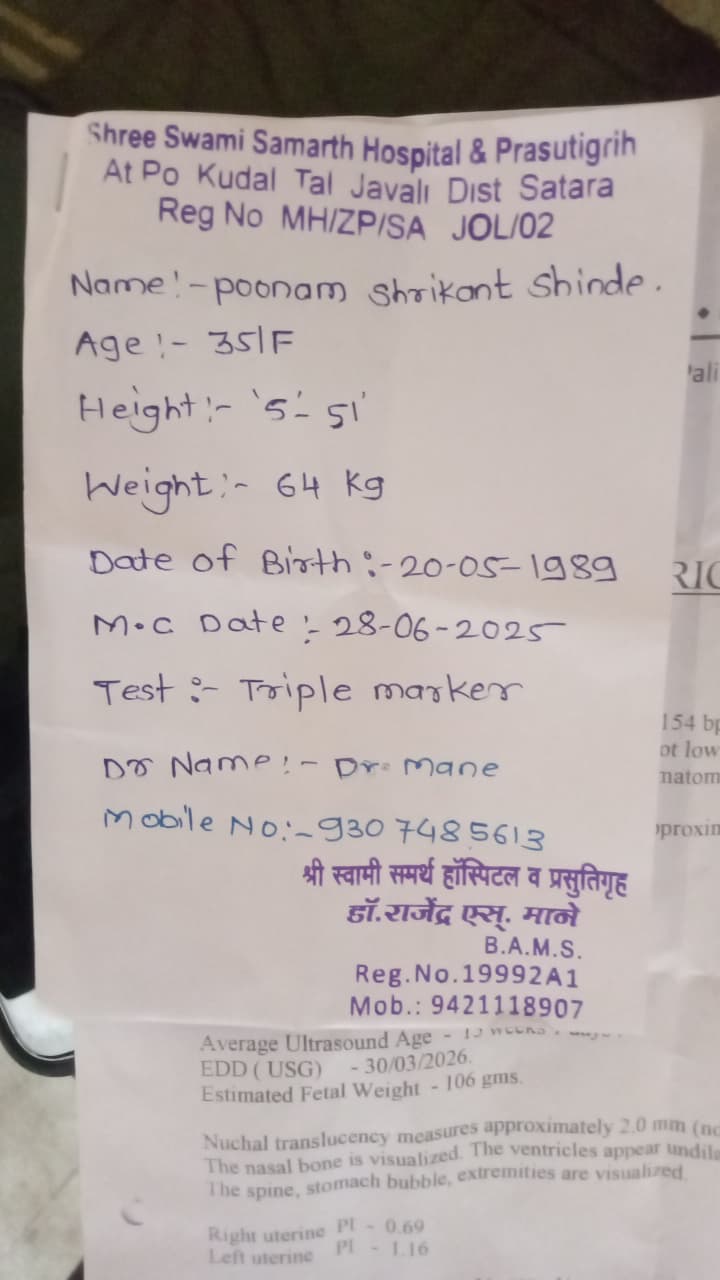 Shree Swami Samarth Hospital & Prasutigrih
At Po Kudal Tal Javali Dist Satara
Reg No MH/ZP/SA JOL/02
Name:- poonam Shrikant Shinde.
Age:- 35/F
Height:- '5'- 51'
Weight:- 64 kg
Date of Birth:- 20-05-1989
M.C Date:- 28-06-2025
Test:- Triple marker
Dr Name:- Dr. Mane
Mobile No:- 9307485613
श्री स्वामी समर्थ हॉस्पिटल व प्रसुतिगृह
डॉ.राजेंद्र एस्. माने
B.A.M.S.
Reg.No.19992A1
Mob.: 9421118907
154 bp
ot low
natom
pproxin
Average Ultrasound Age -
EDD ( USG) - 30/03/2026.
Estimated Fetal Weight - 106 gms.
Nuchal translucency measures approximately 2.0 mm (no
The nasal bone is visualized. The ventricles appear undila
The spine, stomach bubble, extremities are visualized
Right uterine PI - 0.69
Left uterine PI - 1.16